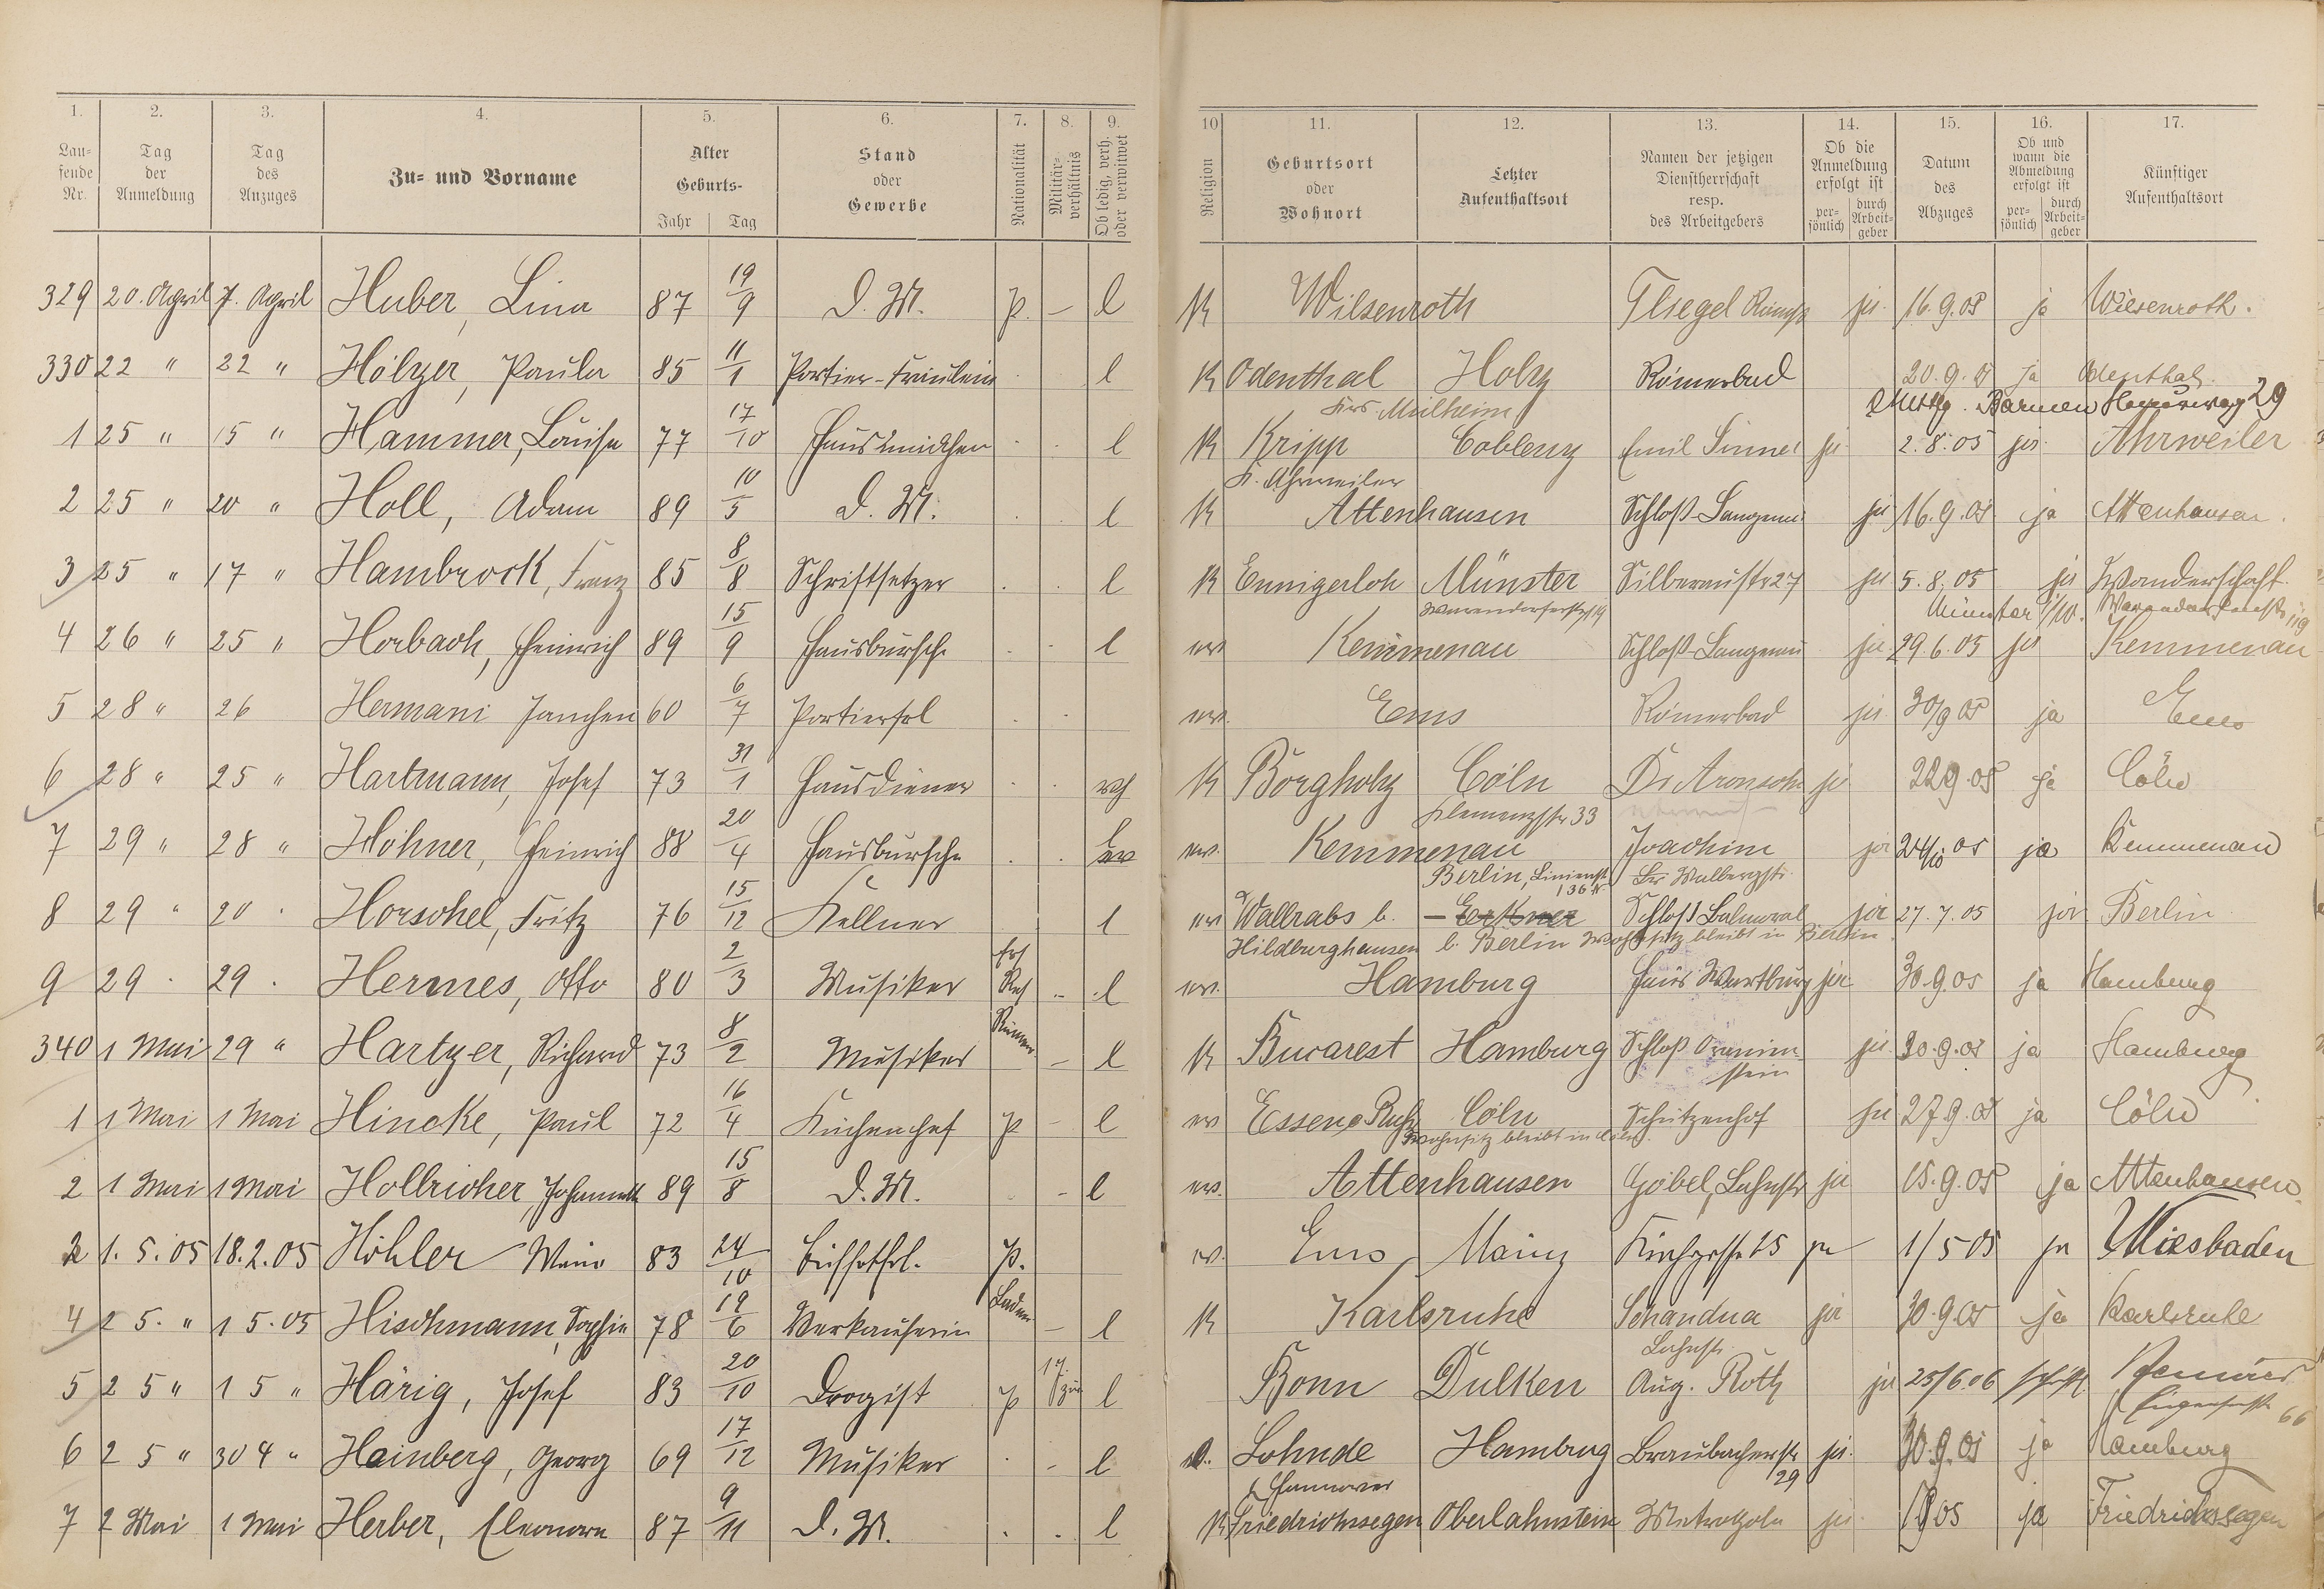 1. 2. 3. 4. 5. 6. 7. 8. 9. 10 11. 12. 13. 14. 15. 16. 17.
Lau-
fende
Nr.
Tag
der
Anmeldung
Tag
des
Anzuges
Zu- und Vorname
Alter
Geburts-
Jahr Tag
Stand
oder
Gewerbe
Nationalität
Militär-
verhältnis
Ob ledig, verh.
oder verwitwet
Religion
Geburtsort
oder
Wohnort
Letzter
Aufenthaltsort
Namen der jetzigen
Dienstherrschaft
resp.
des Arbeitgebers
Ob die
Anmeldung
erfolgt ist
per-
sönlich
durch
Arbeit-
geber
Datum
des
Abzuges
Ob und
wann die
Abmeldung
erfolgt ist
per-
sönlich
durch
Arbeit-
geber
Künftiger
Aufenthaltsort
329 20. April 7. April Huber, Lina 87 19/9 D. M. p. – l K Wilsenroth Fliegel ja 16.9.05 ja Wilsenroth.
330 22 " 22 " Hölzer, Paula 85 11/1 Portier-Fräulein l K Odenthal Holz Römerbad 20.9.05 ja Odenthal
Krs. Mülheim Barmen 29
1 25 " 15 " Hammer, Louise 77 17/10 Hausmädchen l K Kripp Coblenz Emil Sinner ja 2.8.05 ja Ahrweiler
K. Ahrweiler
2 25 " 20 " Holl, Adam 89 10/5 D. M. l K Attenhausen Schloß-Langenau ja 16.9.05 ja Attenhausen.
3 25 " 17 " Hambrock, Franz 85 8/8 Schriftsetzer l K Ennigerloh Münster Silberaustr 27 ja 5.8.05 ja Wanderschaft.
Warendorferstr 14 Münster 1/10.
4 26 " 25 " Horbach, Heinrich 89 15/9 Hausbursche l ev Kemmenau Schloß-Langenau ja 29.6.05 ja Kemmenau
5 28 " 26 Hermani Janchen 60 6/7 Portierfrl ev. Ems Römerbad ja 30/9 05 ja Ems
6 28 " 25 " Hartmann, Josef 73 31/1 Hausdiener vh K Borgholz Cöln Dr Aronsohn ja 22 9.05 ja Cöln
Clemenzstr 33
7 29 " 28 " Höhner, Heinrich 88 20/4 Hausbursche l ev. Kemmenau Joachim ja 24/10 05 ja Kemmenau
Berlin, Linienst 136 Walbergstr.
8 29 " 20 . Horschel, Fritz 76 15/12 Kellner l ev Wallrabs b. – Erkner Schloß Balmoral ja 27.7.05 ja Berlin
Hildburghausen b. Berlin Wohnsitz bleibt in Berlin.
9 29 . 29 . Hermes, Otto 80 2/3 Musiker – l ev. Hamburg Haus Wartburg ja 30.9.05 ja Hamburg
340 1 Mai 29 " Hartzer, Richard 73 8/2 Musiker – l K Bucarest Hamburg Schloß Oranien
stein ja 30.9.05 ja Hamburg
1 1 Mai 1 Mai Hincke, Paul 72 16/4 Küchenchef p – l ev Essen a Ruhr Cöln Schützenhof ja 27.9.05 ja Cöln
Wohnsitz bleibt in Cöln.
2 1 Mai 1 Mai Hollricher, Johannette 89 15/8 D. M. – l ev. Attenhausen Göbel, Lahnstr ja 15.9.05 ja Attenhausen.
1. 5. 05 18. 2. 05 Höhler 83 24/10 p. ev. Ems Mainz 1/5 05 ja Wiesbaden
4 2 5. " 1 5. 05 Hischmann, Sophie 78 19/6 Verkäuferin Baden – l K Karlsruhe Schandua
Lahnstr. ja 30.9.05 ja Karlsruhe
5 2 5 " 1 5 " Härig, Josef 83 20/10 Drogist p l Bonn Dülken Aug. Roth ja 25/6.06 66
6 2 5 " 30 4 " Hainberg, Georg 69 17/12 Musiker – l Lohnde Hamburg Braubacherstr
29 ja. 30.9.05 ja Hamburg
b Hannover
7 2 Mai 1 Mai Herber, Eleonora 87 9/11 D. M. l K Friedrichssegen Oberlahnstein Metropole ja 05 ja Friedrichssegen